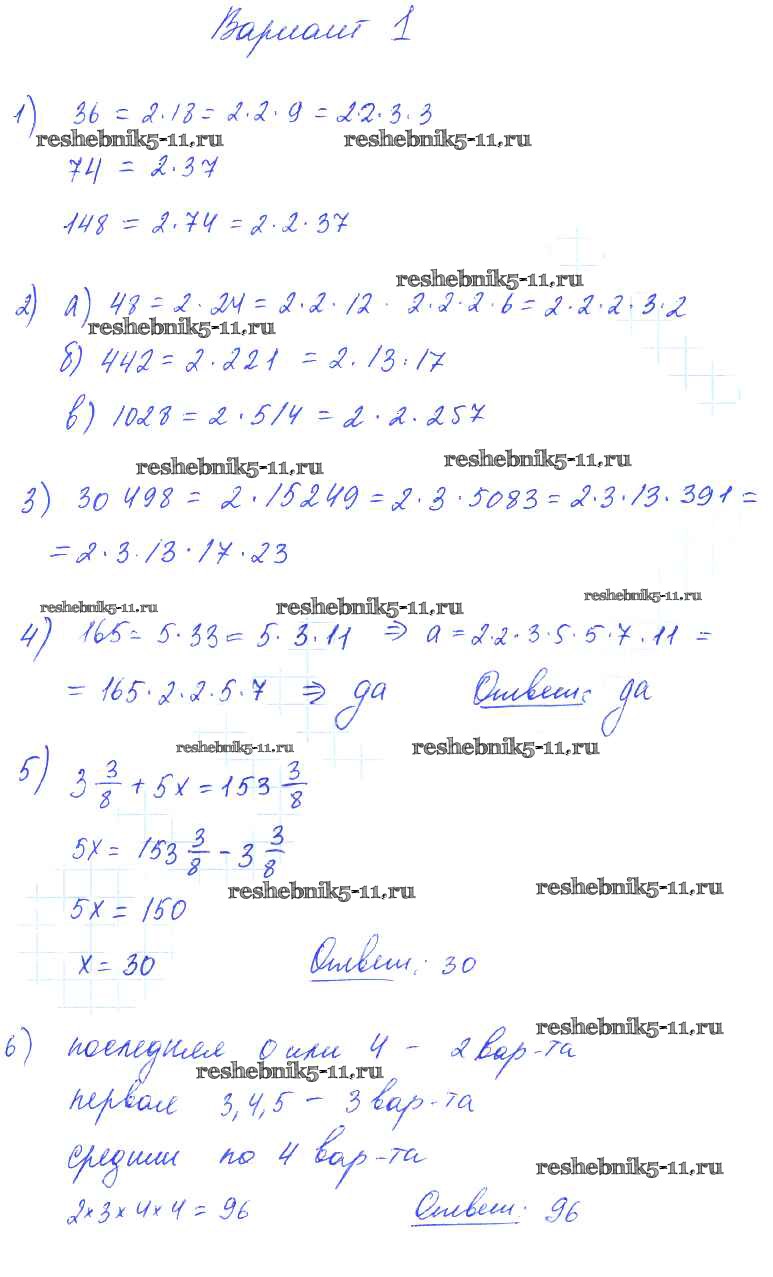 Вариант 1
1) 36 = 2·18 = 2·2·9 = 2·2·3·3
reshebnik5-11.ru reshebnik5-11.ru
74 = 2·37
148 = 2·74 = 2·2·37
reshebnik5-11.ru
2) а) 48 = 2·24 = 2·2·12 · 2·2·2·6 = 2·2·2·3·2
reshebnik5-11.ru
б) 442 = 2·221 = 2·13:17
в) 1028 = 2·514 = 2·2·257
reshebnik5-11.ru reshebnik5-11.ru
3) 30 498 = 2·15249 = 2·3·5083 = 2·3·13·391 =
= 2·3·13·17·23
reshebnik5-11.ru reshebnik5-11.ru reshebnik5-11.ru
4) 165 = 5·33 = 5·3·11 ⇒ а = 2·2·3·5·5·7·11 =
= 165·2·2·5·7 ⇒ да Ответ: да
reshebnik5-11.ru reshebnik5-11.ru
5) 3 3/8 + 5x = 153 3/8
5x = 153 3/8 - 3 3/8
reshebnik5-11.ru reshebnik5-11.ru
5x = 150
x = 30 Ответ: 30
reshebnik5-11.ru
6) последняя 0 или 4 - 2 вар-та
reshebnik5-11.ru
первая 3,4,5 - 3 вар-та
средние по 4 вар-та
reshebnik5-11.ru
2×3×4×4 = 96 Ответ: 96